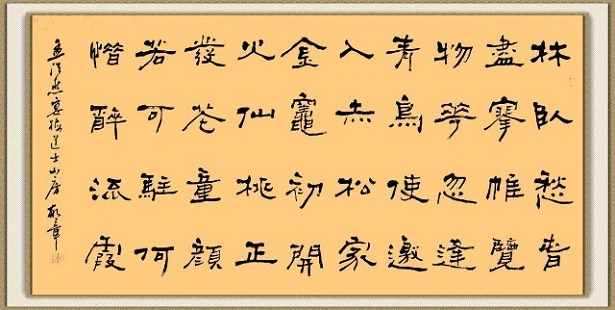 林臥愁春
盡搴帷覽
物華忽逢
青鳥使邀
入赤松家
金竈初開
火仙桃正
發花童顏
若可駐何
惜醉流霞
孟浩然宴梅道士山房